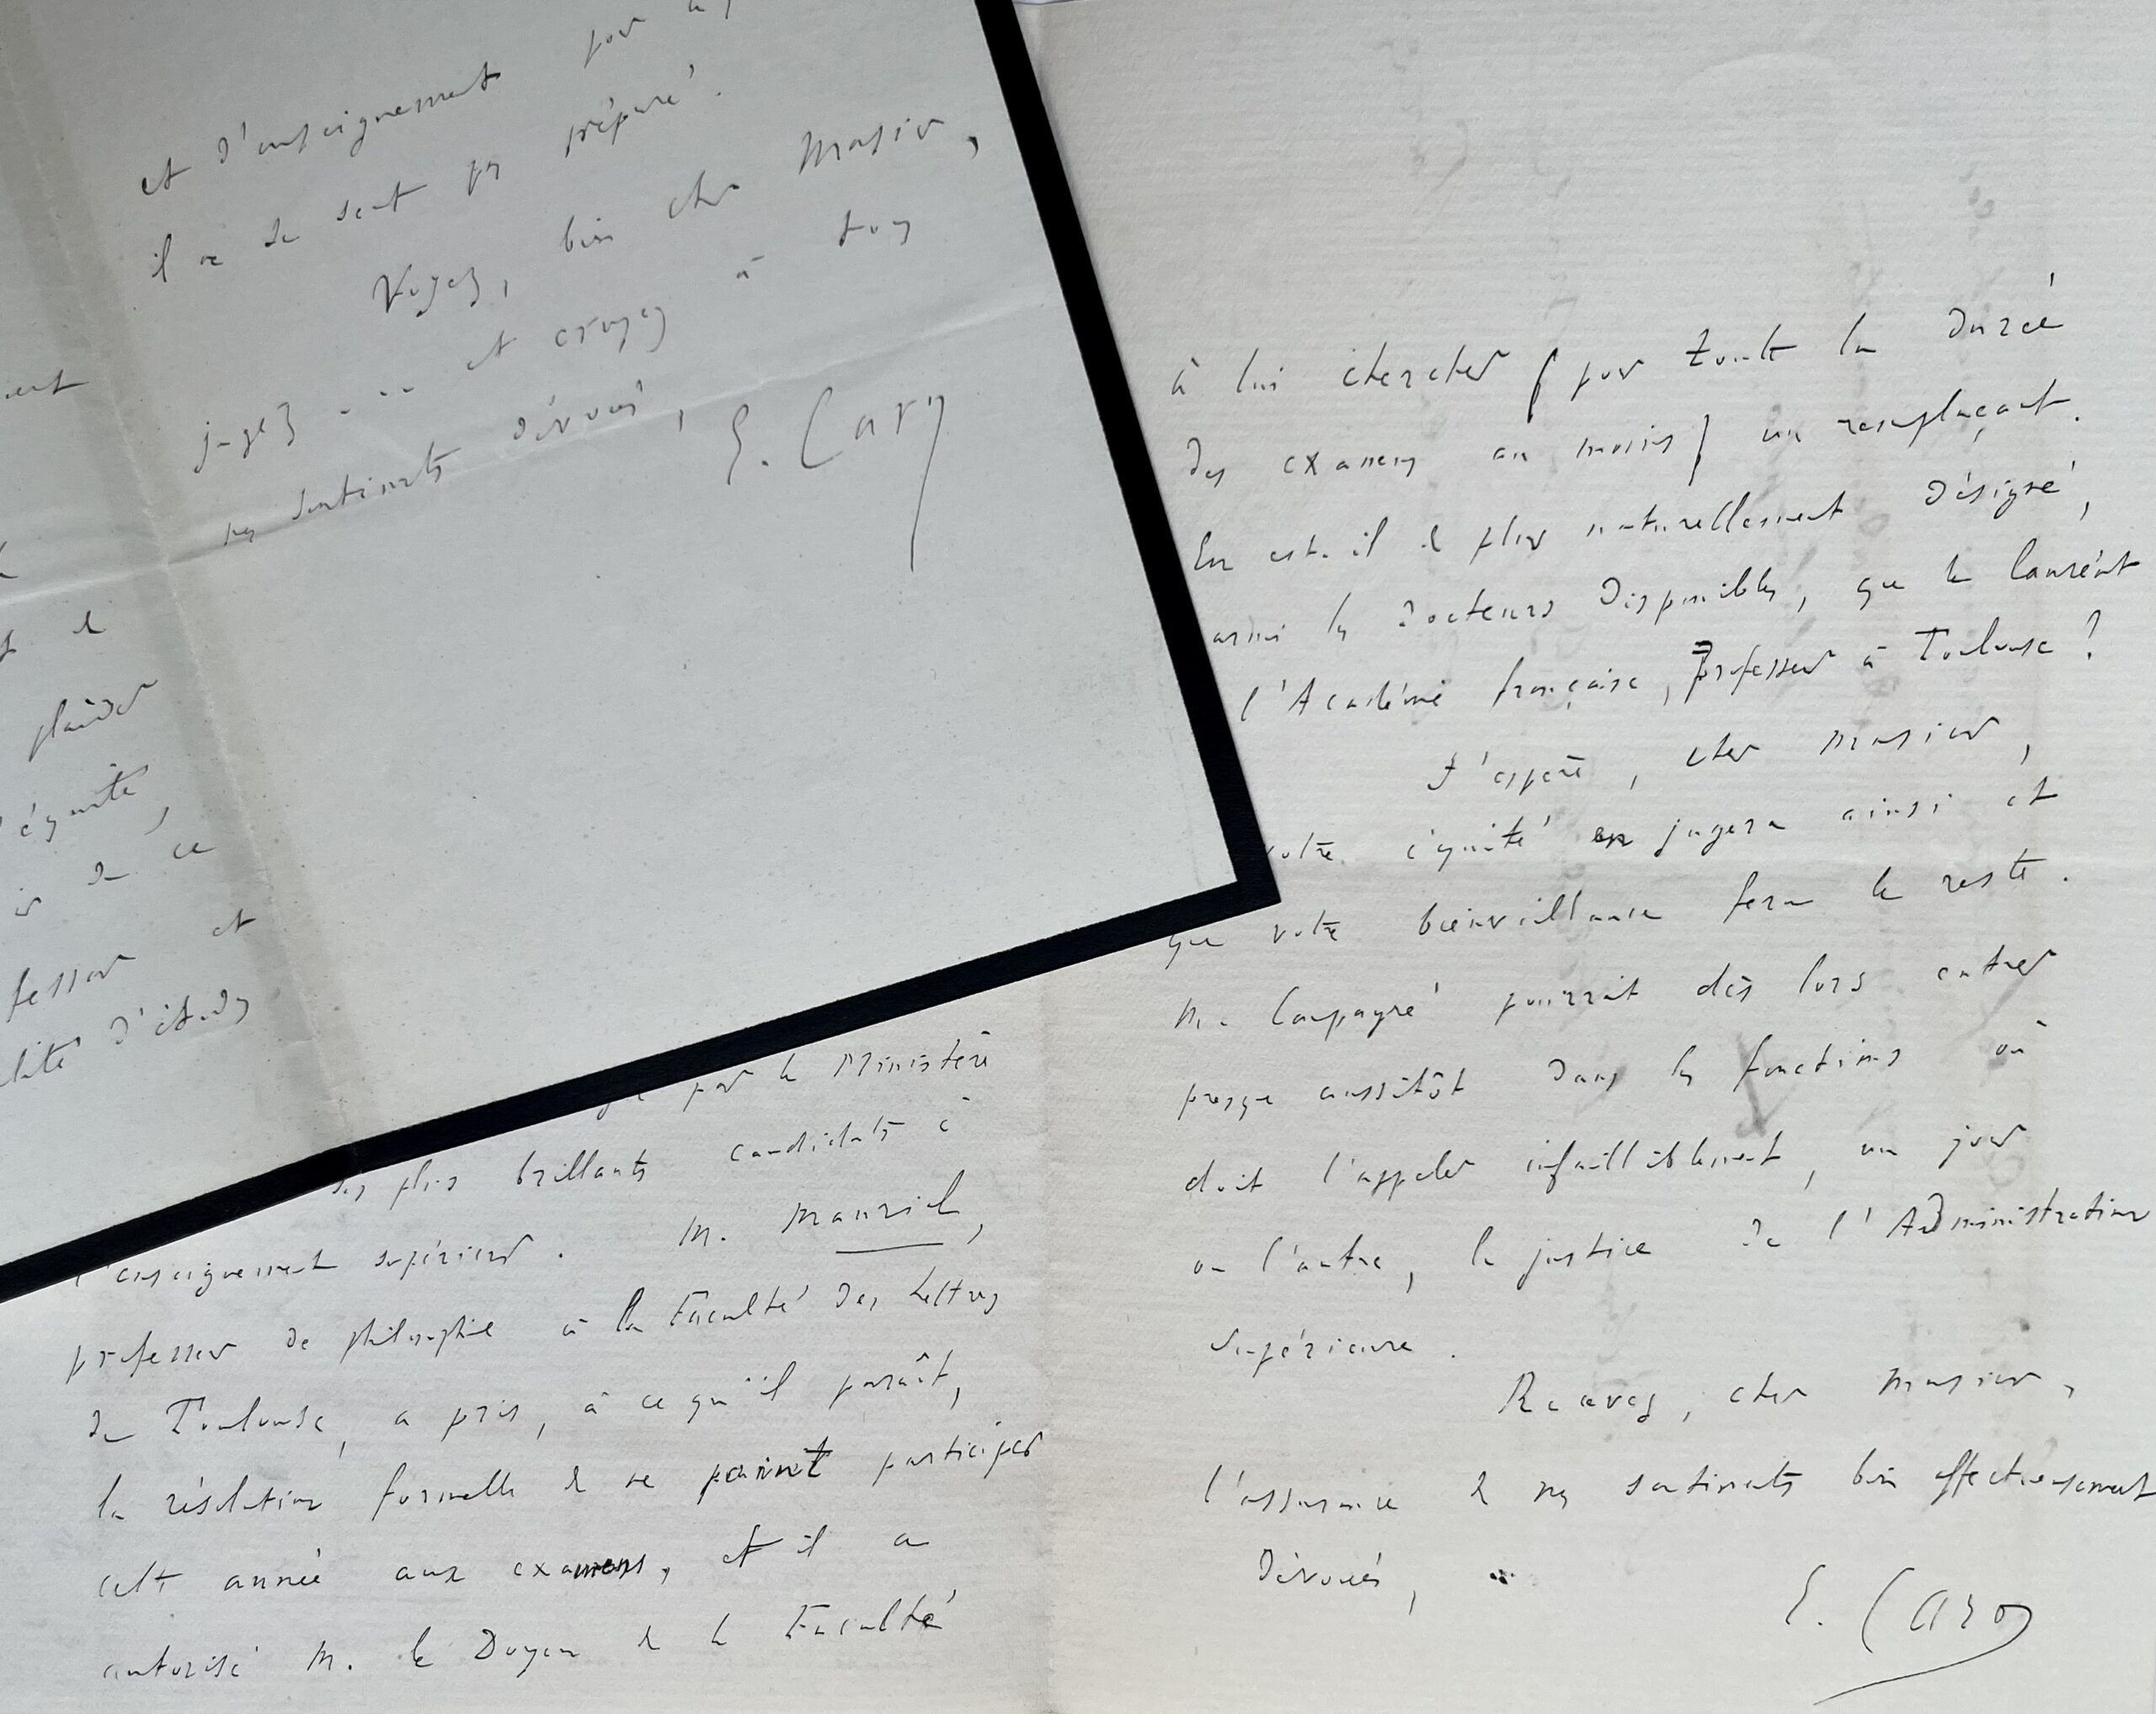 et d'enseignement pour
il ne se sent pas préparé.
Voyez, bien cher Monsieur,
jugez ... et croyez à tous
mes sentiments dévoués,
E. Caro
plaider
équité,
de ce
et
fesseur
d'études
par le Ministère
des plus brillants candidats à
l'enseignement supérieur. M. Mauriel,
professeur de philosophie à la Faculté des Lettres
de Toulouse, a pris, à ce qu'il paraît,
la résolution formelle de ne point participer
cette année aux examens, et il a
autorisé M. le Doyen de la Faculté
à lui chercher (pour toute la durée
des examens au moins) un remplaçant.
En est-il de plus naturellement désigné,
armi les Docteurs disponibles, que le lauréat
l'Académie française, Professeur à Toulouse ?
J'espère, cher Monsieur,
votre équité en jugera ainsi et
que votre bienveillance fera le reste.
M. Compayré pourrait dès lors entrer
presque aussitôt dans les fonctions où
doit l'appeler infailliblement, un jour
ou l'autre, la justice de l'Administration
Supérieure.
Recevez, cher Monsieur,
l'assurance de mes sentiments bien affectueusement
dévoués,
E. Caro